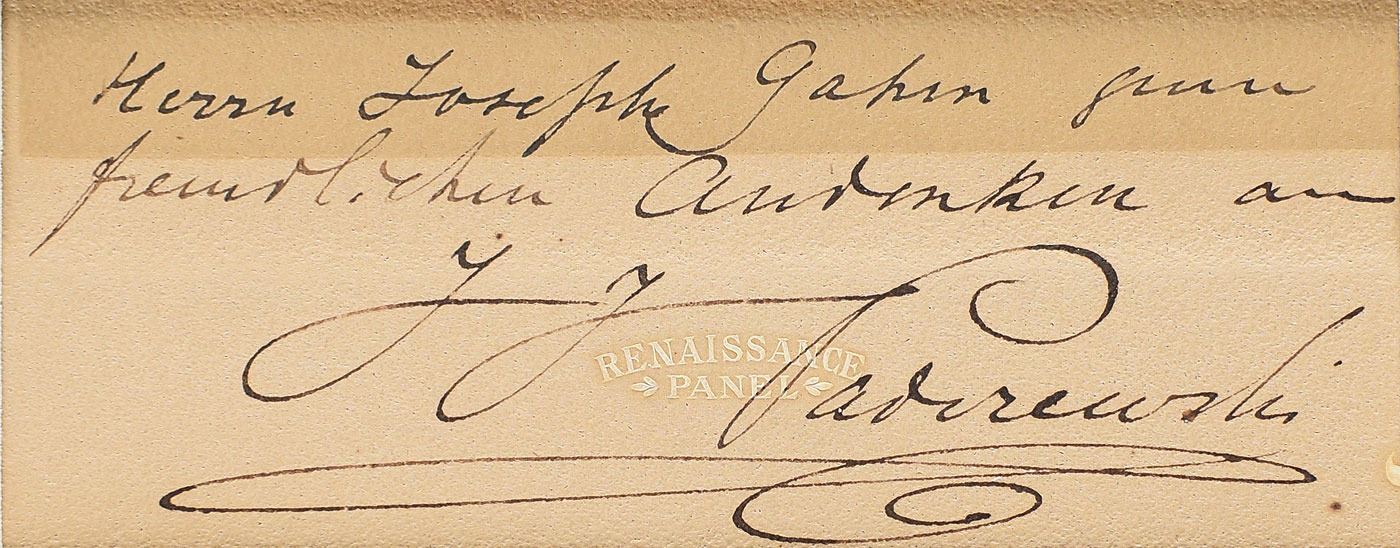 Herrn Joseph Gahm zum
freundlichen Andenken an
I J Paderewski
RENAISSANCE
PANEL